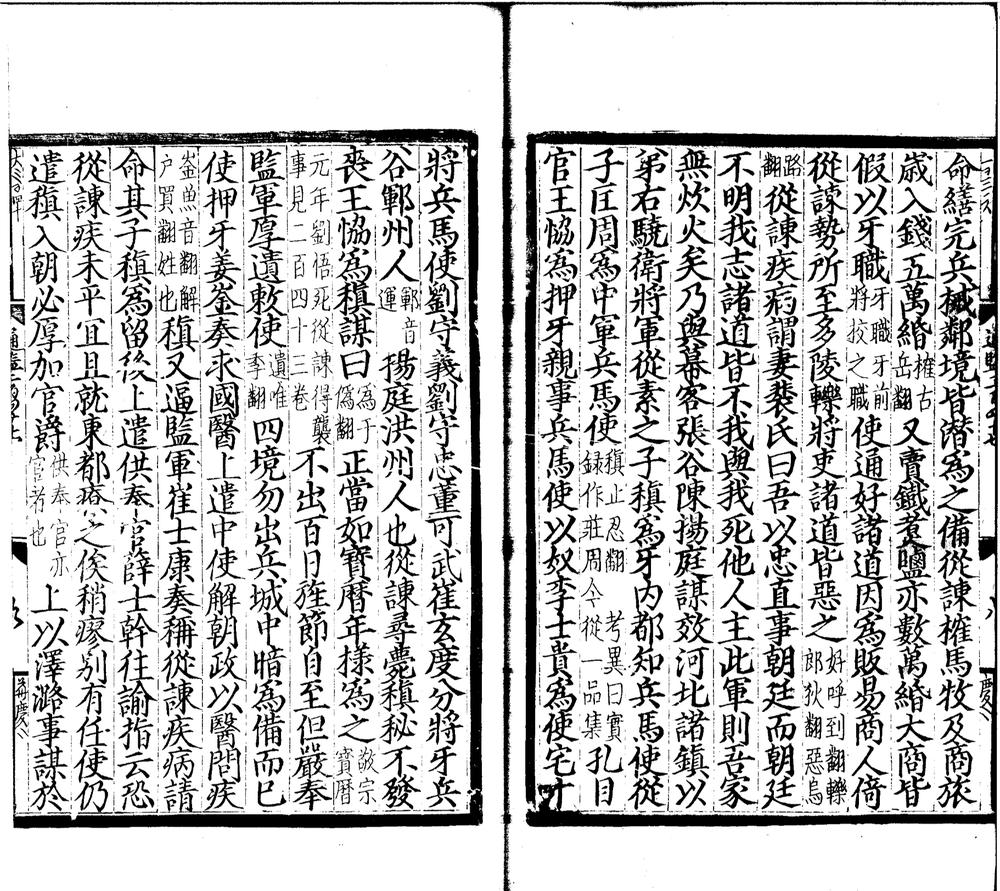 命繕完兵械鄰境皆潛爲之備從諫榷馬牧及商旅
歲入錢五萬緡榷古岳翻又賣鐵煮鹽亦數萬緡大商皆
假以牙職牙職牙前將校之職使通好諸道因爲販易商人倚
從諫勢所至多陵轢將吏諸道皆惡之好呼到翻轢郎狄翻惡烏
路翻從諫疾病謂妻裴氏曰吾以忠直事朝廷而朝廷
不明我志諸道皆不我與我死他人主此軍則吾家
無炊火矣乃與幕客張谷陳揚庭謀效河北諸鎮以
弟右驍衛將軍從素之子稹爲牙內都知兵馬使從
子匡周爲中軍兵馬使稹止忍翻考異曰實録作莊周今從一品集孔目
官王協爲押牙親事兵馬使以奴李士貴爲使宅十
將兵馬使劉守義劉守忠董可武崔玄度分將牙兵
谷鄆州人鄆音運揚庭洪州人也從諫尋薨稹秘不發
喪王協爲稹謀曰爲于僞翻正當如寶曆年樣爲之敬宗寶曆
元年劉悟死從諫得襲事見二百四十三卷不出百日旌節自至但嚴奉
監軍厚遺敕使遺唯季翻四境勿出兵城中暗爲備而已
使押牙姜崟奏求國醫上遣中使解朝政以醫問疾
崟魚音翻解户買翻姓也稹又逼監軍崔士康奏稱從諫疾病請
命其子稹爲留後上遣供奉官薛士幹往諭指云恐
從諫疾未平宜且就東都療之俟稍瘳别有任使仍
遣稹入朝必厚加官爵供奉官亦官者也上以澤潞事謀於